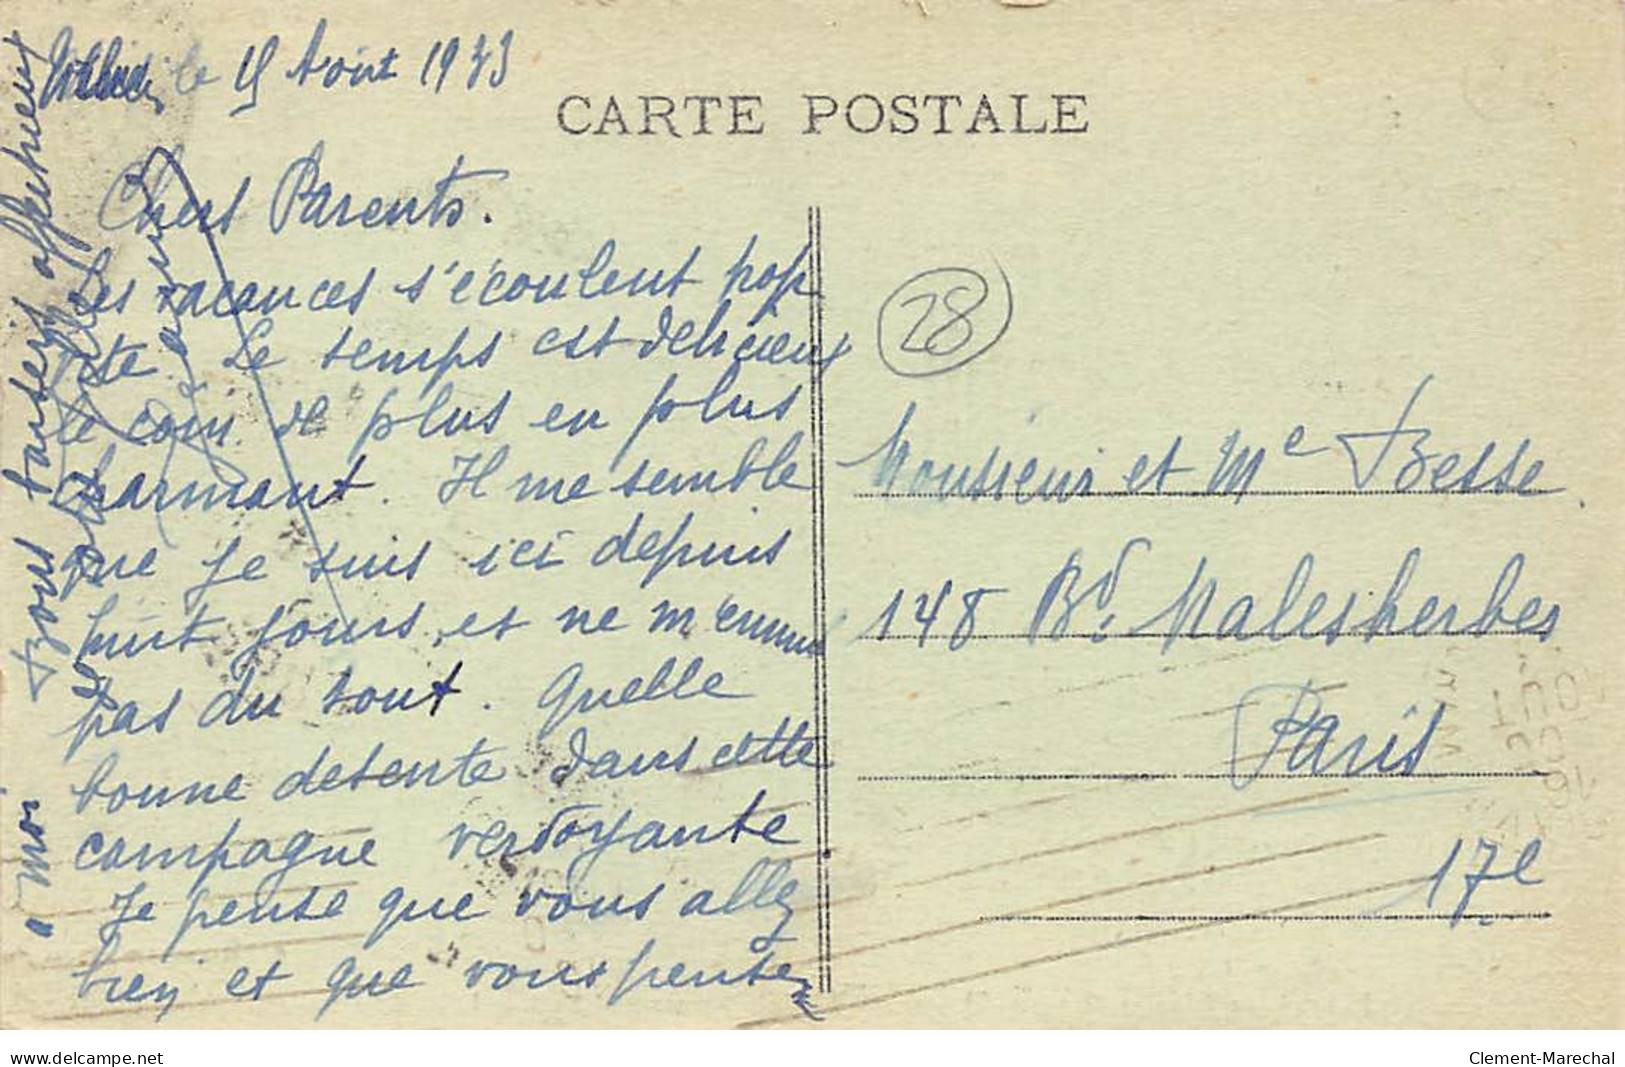 le 15 Août 1933
CARTE POSTALE
Chers Parents.
Les vacances s'écoulent trop
vite. Le temps est délicieux
le coin de plus en plus
charmant. Il me semble
que je suis ici depuis
huit jours, et ne m'ennuie
pas du tout. Quelle
bonne detente dans cette
campagne verdoyante
Je pense que vous allez
bien et que vous pensez
à moi
Bons baisers affectueux
28
Monsieur et Me Besse.
148 Bd. Malesherbes
Paris
17e
delcampe.net
Clement-Marechal